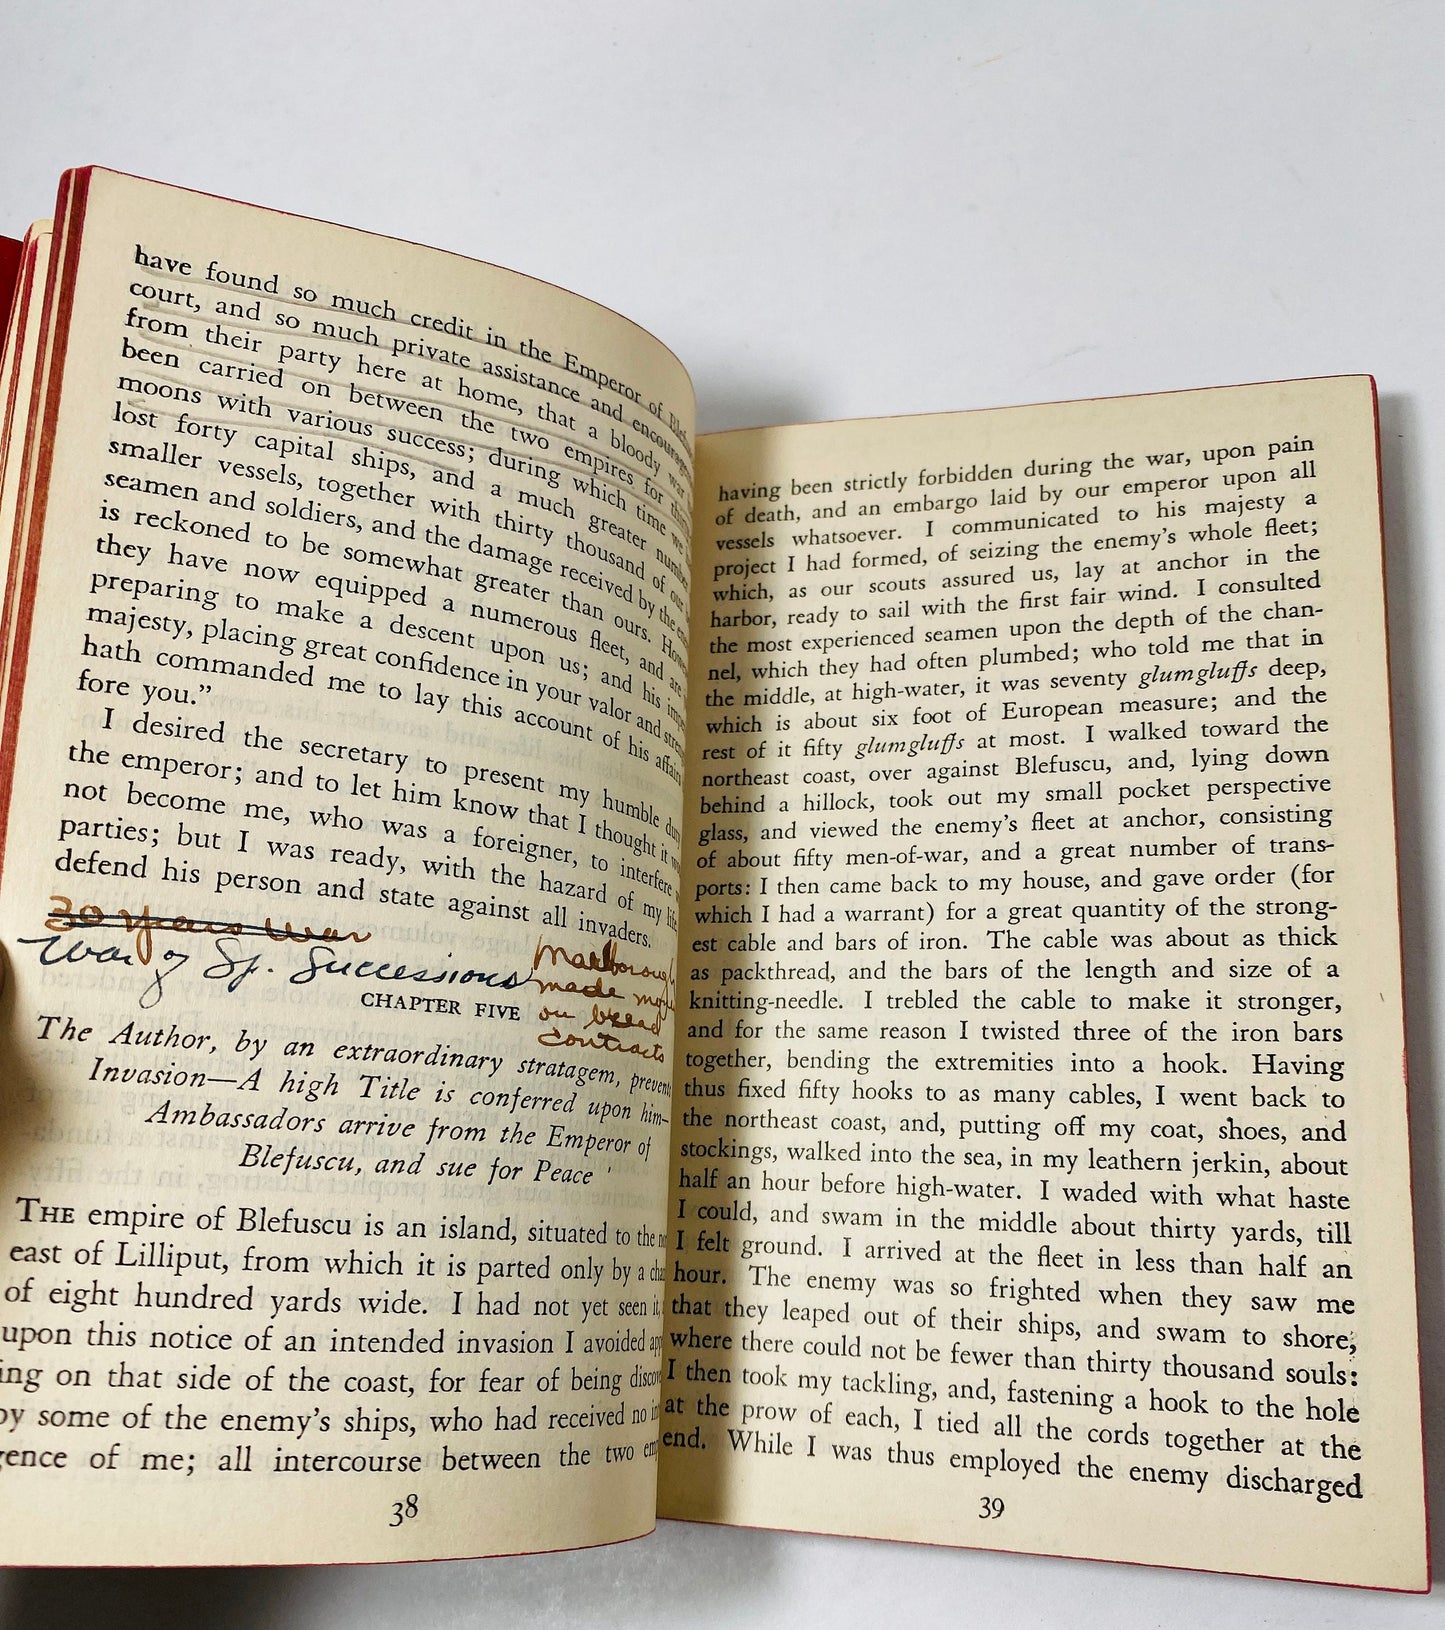 have found so much credit in the Emperor of
court, and so much private assistance and
from their party here at home, that a bloody war
been carried on between the two empires for
moons with various success; during which time we
lost forty capital ships, and a much greater number
smaller vessels, together with thirty thousand of our
seamen and soldiers, and the damage received by the
is reckoned to be somewhat greater than ours.
they have now equipped a numerous fleet, and are
preparing to make a descent upon us; and his
majesty, placing great confidence in your valor and
hath commanded me to lay this account of his
fore you.”
I desired the secretary to present my humble
the emperor; and to let him know that I thought it
not become me, who was a foreigner, to interfere
parties; but I was ready, with the hazard of my
defend his person and state against all invaders.
30 years War
War of Sp. Successions
Marlborough
made
on bread
contracts
CHAPTER FIVE
The Author, by an extraordinary stratagem,
Invasion—A high Title is conferred upon him—
Ambassadors arrive from the Emperor of
Blefuscu, and sue for Peace
THE empire of Blefuscu is an island, situated to the
east of Lilliput, from which it is parted only by a
of eight hundred yards wide. I had not yet seen it,
upon this notice of an intended invasion I avoided
ing on that side of the coast, for fear of being
by some of the enemy’s ships, who had received no
gence of me; all intercourse between the two
38
having been strictly forbidden during the war, upon pain
of death, and an embargo laid by our emperor upon all
vessels whatsoever. I communicated to his majesty a
project I had formed, of seizing the enemy’s whole fleet;
which, as our scouts assured us, lay at anchor in the
harbor, ready to sail with the first fair wind. I consulted
the most experienced seamen upon the depth of the chan-
nel, which they had often plumbed; who told me that in
the middle, at high-water, it was seventy glumgluffs deep,
which is about six foot of European measure; and the
rest of it fifty glumgluffs at most. I walked toward the
northeast coast, over against Blefuscu, and, lying down
behind a hillock, took out my small pocket perspective
glass, and viewed the enemy’s fleet at anchor, consisting
of about fifty men-of-war, and a great number of trans-
ports: I then came back to my house, and gave order (for
which I had a warrant) for a great quantity of the strong-
est cable and bars of iron. The cable was about as thick
as packthread, and the bars of the length and size of a
knitting-needle. I trebled the cable to make it stronger,
and for the same reason I twisted three of the iron bars
together, bending the extremities into a hook. Having
thus fixed fifty hooks to as many cables, I went back to
the northeast coast, and, putting off my coat, shoes, and
stockings, walked into the sea, in my leathern jerkin, about
half an hour before high-water. I waded with what haste
I could, and swam in the middle about thirty yards, till
I felt ground. I arrived at the fleet in less than half an
hour. The enemy was so frighted when they saw me
that they leaped out of their ships, and swam to shore;
where there could not be fewer than thirty thousand souls:
I then took my tackling, and, fastening a hook to the hole
at the prow of each, I tied all the cords together at the
end. While I was thus employed the enemy discharged
39